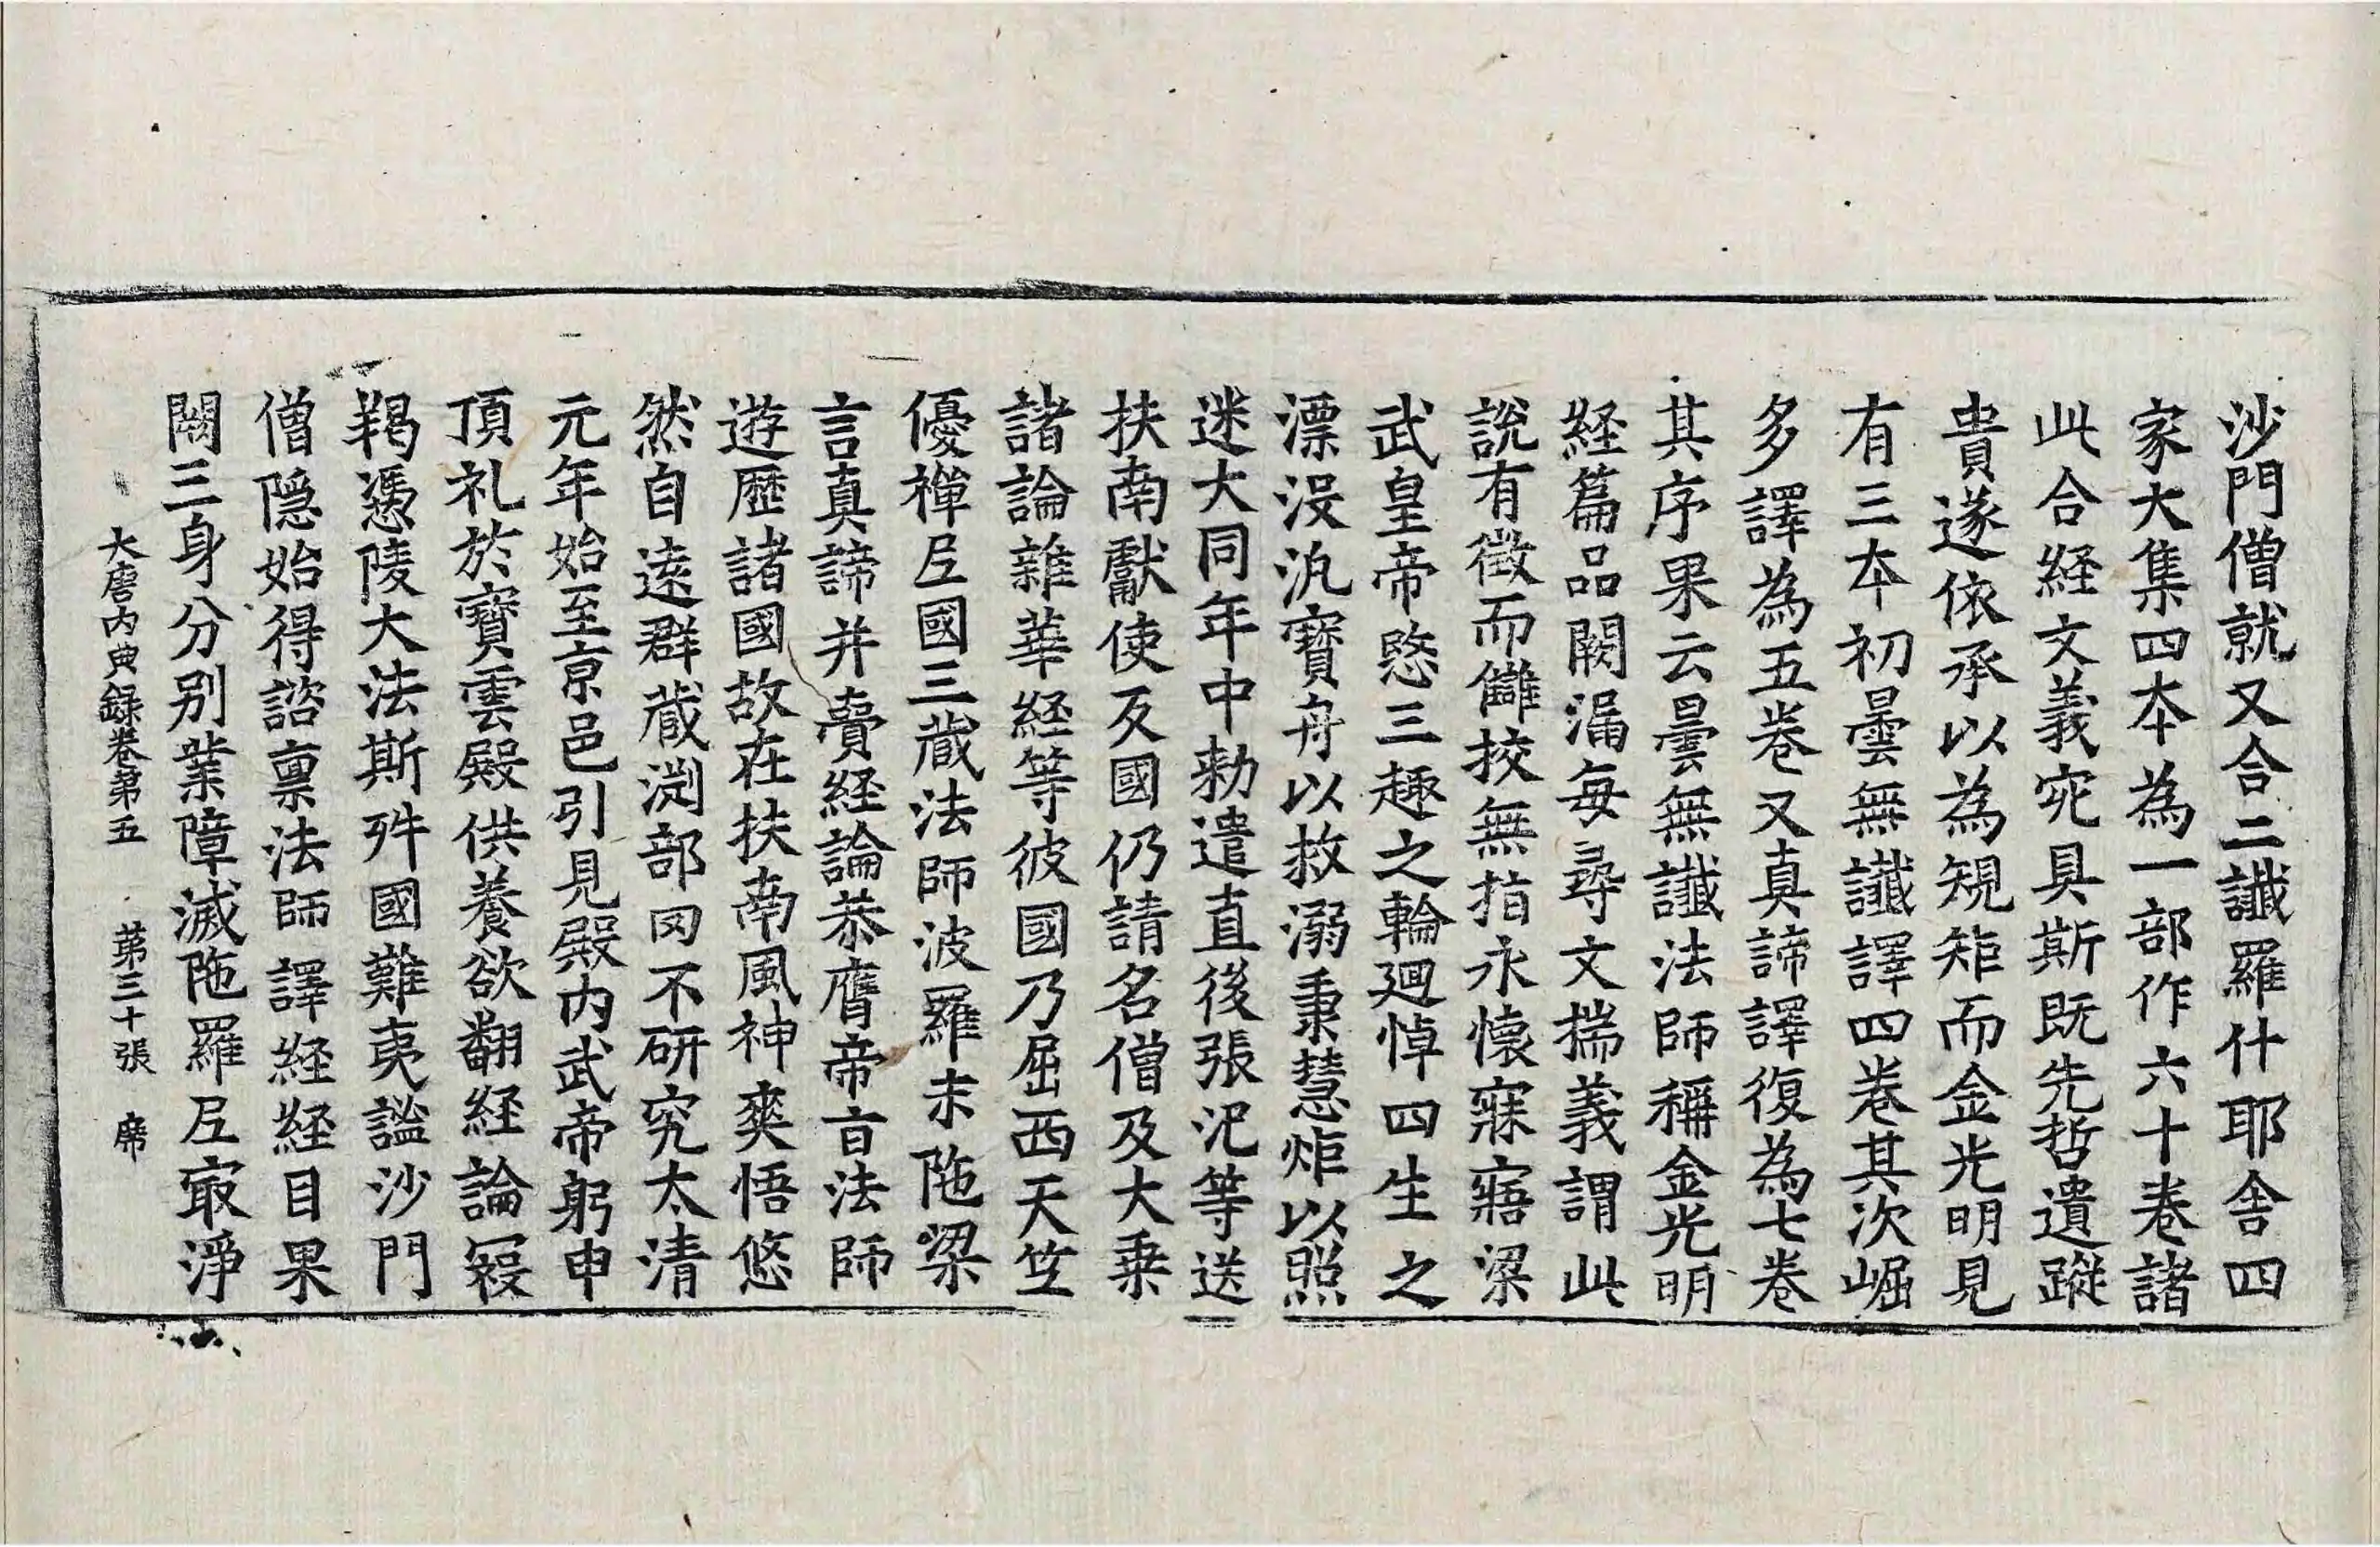 沙門僧就又合二讖羅什耶舍四
家大集四本為一部作六十卷諸
此合経文義宛具斯既先哲遺蹤
貴遂依承以為規矩而金光明見
有三本初曇無讖譯四卷其次崛
多譯為五卷又真諦譯復為七卷
其序果云曇無讖法師稱金光明
経篇品闕漏每尋文揣義謂此
說有徵而讎挍無指永懷寐寤梁
武皇帝愍三趣之輪廻悼四生之
漂没汎寶舟以救溺秉慧炬以照
迷大同年中勑遣直後張汜等送
扶南獻使反國仍請名僧及大乗
諸論雜華経等彼國乃屈西天竺
優禪尼國三藏法師波羅末陁梁
言真諦并賷経論恭膺帝旨法師
遊歷諸國故在扶南風神爽悟悠
然自遠群藏渕部罔不研究太清
元年始至京邑引見殿内武帝躬申
頂礼於寶雲殿供養欲翻経論寇
羯憑陵大法斯舛國難夷謐沙門
僧隠始得諮禀法師譯経経目果
闕三身分别業障滅陁羅尼㝡淨
大唐内典録卷第五　第三十張　席